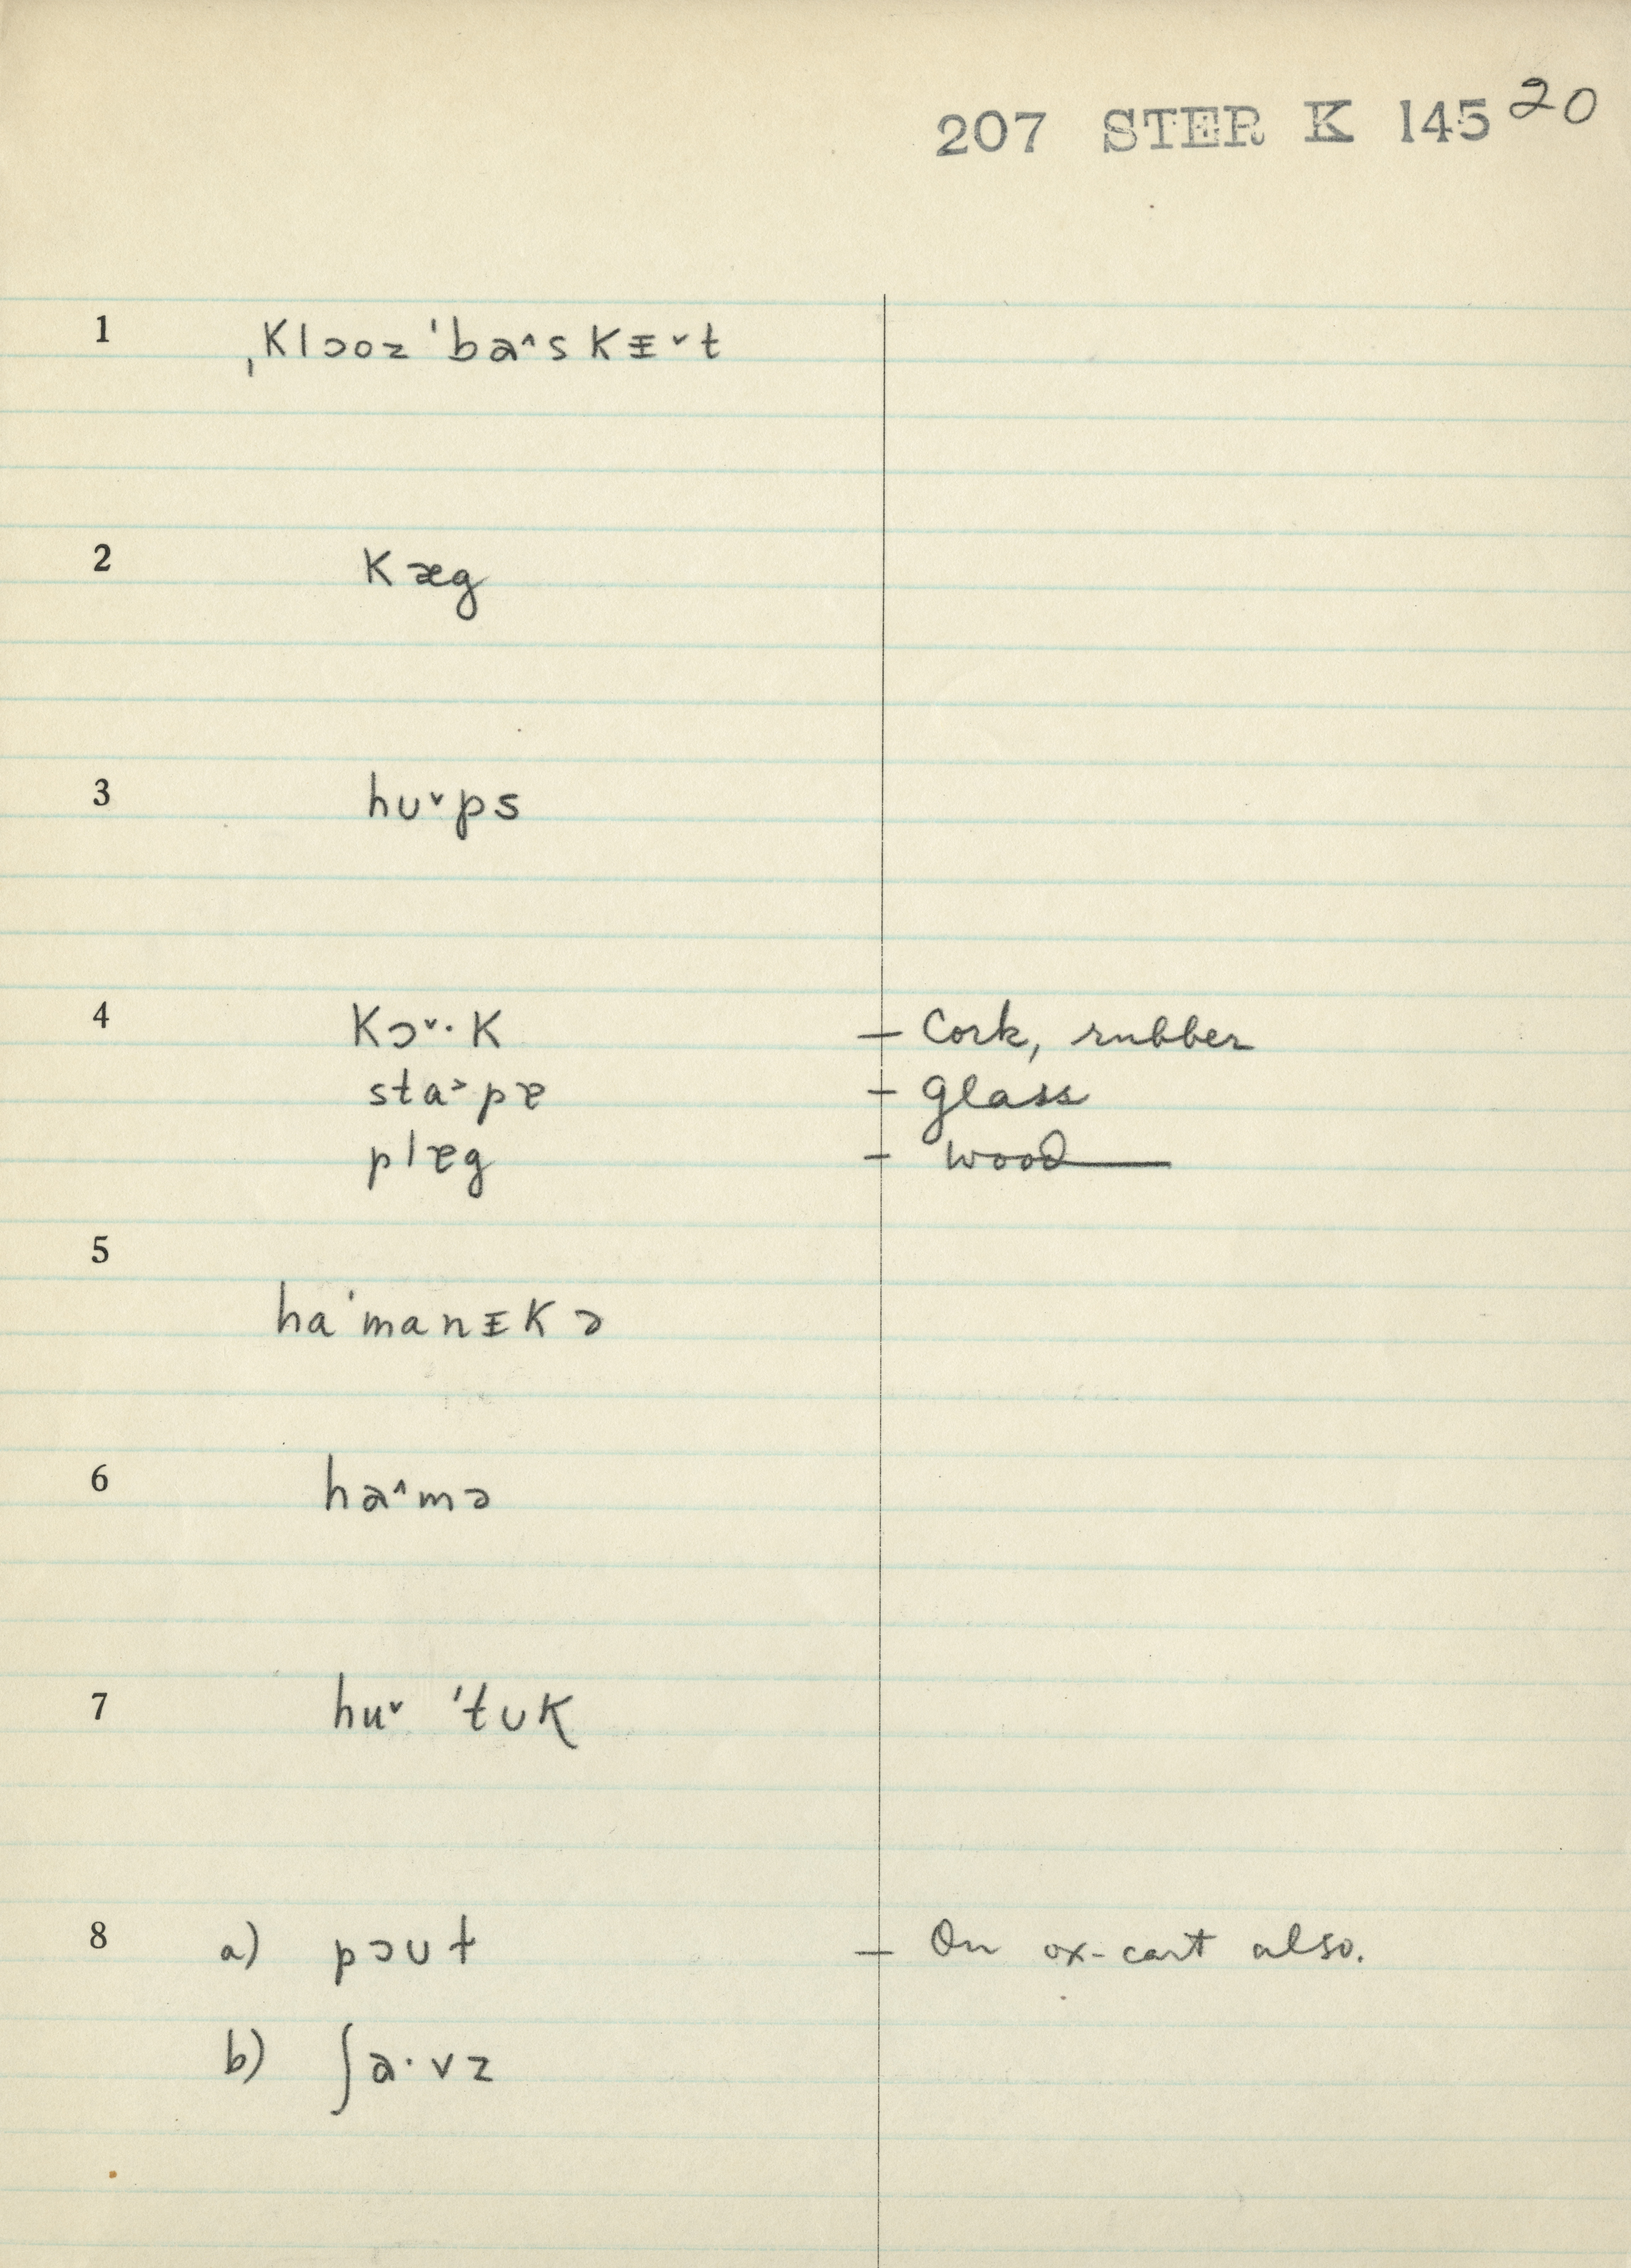 207 STER K 145 20
1 ˌklɔoz ˈbaˆskᵻˇt
2 kæg
3 huˇps
4 kɔˇ·k – Cork, rubber
sta˃pɐ – glass
plɐg – wood
5 haˈmanᵻkə
6 haˆmə
7 huˇ ˈtʊk
8 a) pɔʊt – On ox-cart also.
b) ʃa·vz